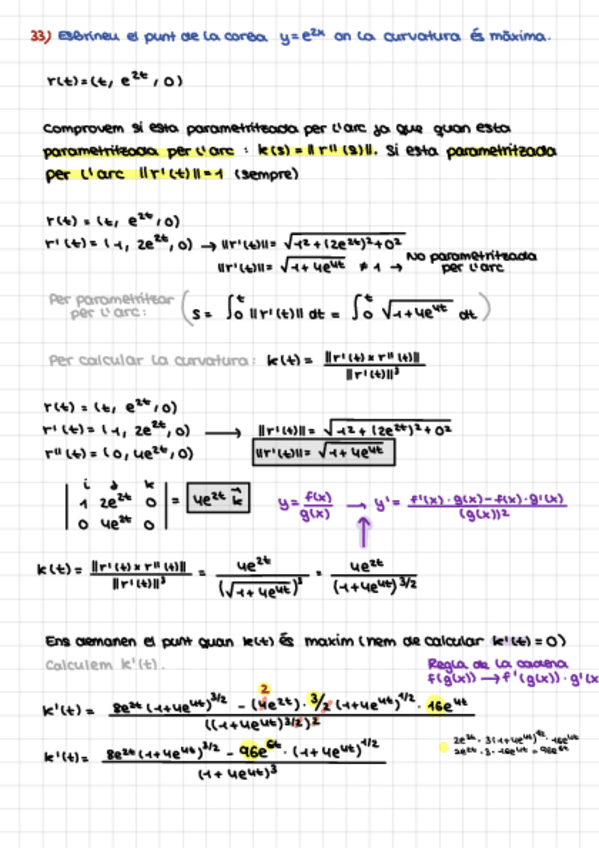 33) Esbrineu el punt de la corba y=e^2x on la curvatura és màxima.
r(t)=(t, e^2t, 0)
Comprovem si esta parametritzada per l'arc ja que quan esta
parametritzada per l'arc : k(s) = ||r''(s)||. Si esta parametritzada
per l'arc ||r'(t)||=1 (sempre)
r(t) = (t, e^2t, 0)
r'(t) = (1, 2e^2t, 0) → ||r'(t)|| = √(1²+(2e^2t)²+0²)
||r'(t)|| = √(1+4e^4t) ≠ 1 → No parametritzada
per l'arc
Per parametritzar
per l'arc: ( s = ∫₀^t ||r'(t)|| dt = ∫₀^t √(1+4e^4t) dt )
Per calcular la curvatura: k(t) = ||r'(t) x r''(t)|| / ||r'(t)||³
r(t) = (t, e^2t, 0)
r'(t) = (1, 2e^2t, 0) → ||r'(t)|| = √(1² + (2e^2t)² + 0²)
r''(t) = (0, 4e^2t, 0) ||r'(t)|| = √(1+4e^4t)
i j k
1 2e^2t 0 = 4e^2t k⃗ y = f(x)/g(x) → y' = (f'(x)·g(x)-f(x)·g'(x))/(g(x))²
0 4e^2t 0
k(t) = ||r'(t) x r''(t)|| / ||r'(t)||³ = 4e^2t / (√(1+4e^4t))³ = 4e^2t / (1+4e^4t)^3/2
Ens demanen el punt quan k(t) és maxim (hem de calcular k'(t)=0)
Calculem k'(t).
Regla de la cadena
f(g(x)) → f'(g(x))·g'(x
k'(t) = (8e^2t (1+4e^4t)^3/2 - (4e^2t)· 3/2 (1+4e^4t)^1/2 · 16e^4t) / ((1+4e^4t)^3/2)²
2
k'(t) = (8e^2t (1+4e^4t)^3/2 - 96e^6t · (1+4e^4t)^1/2) / (1+4e^4t)³
2e^2t · 3(1+4e^4t)^1/2 · 16e^4t
2e^2t · 3 · 16e^4t = 96e^6t